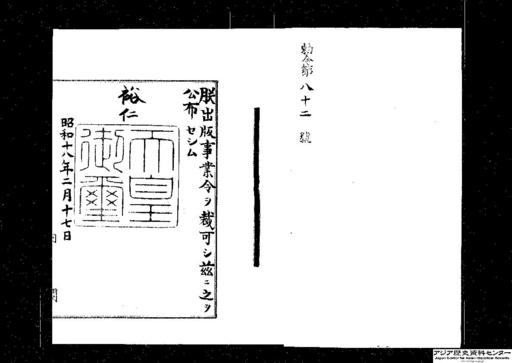 勅令第八十二號
朕出版事業令ヲ裁可シ茲ニ之ヲ
公布セシム
裕仁
天皇
御璽
昭和十八年二月十七日
アジア歴史資料センター
Japan Center for Asian Historical Records